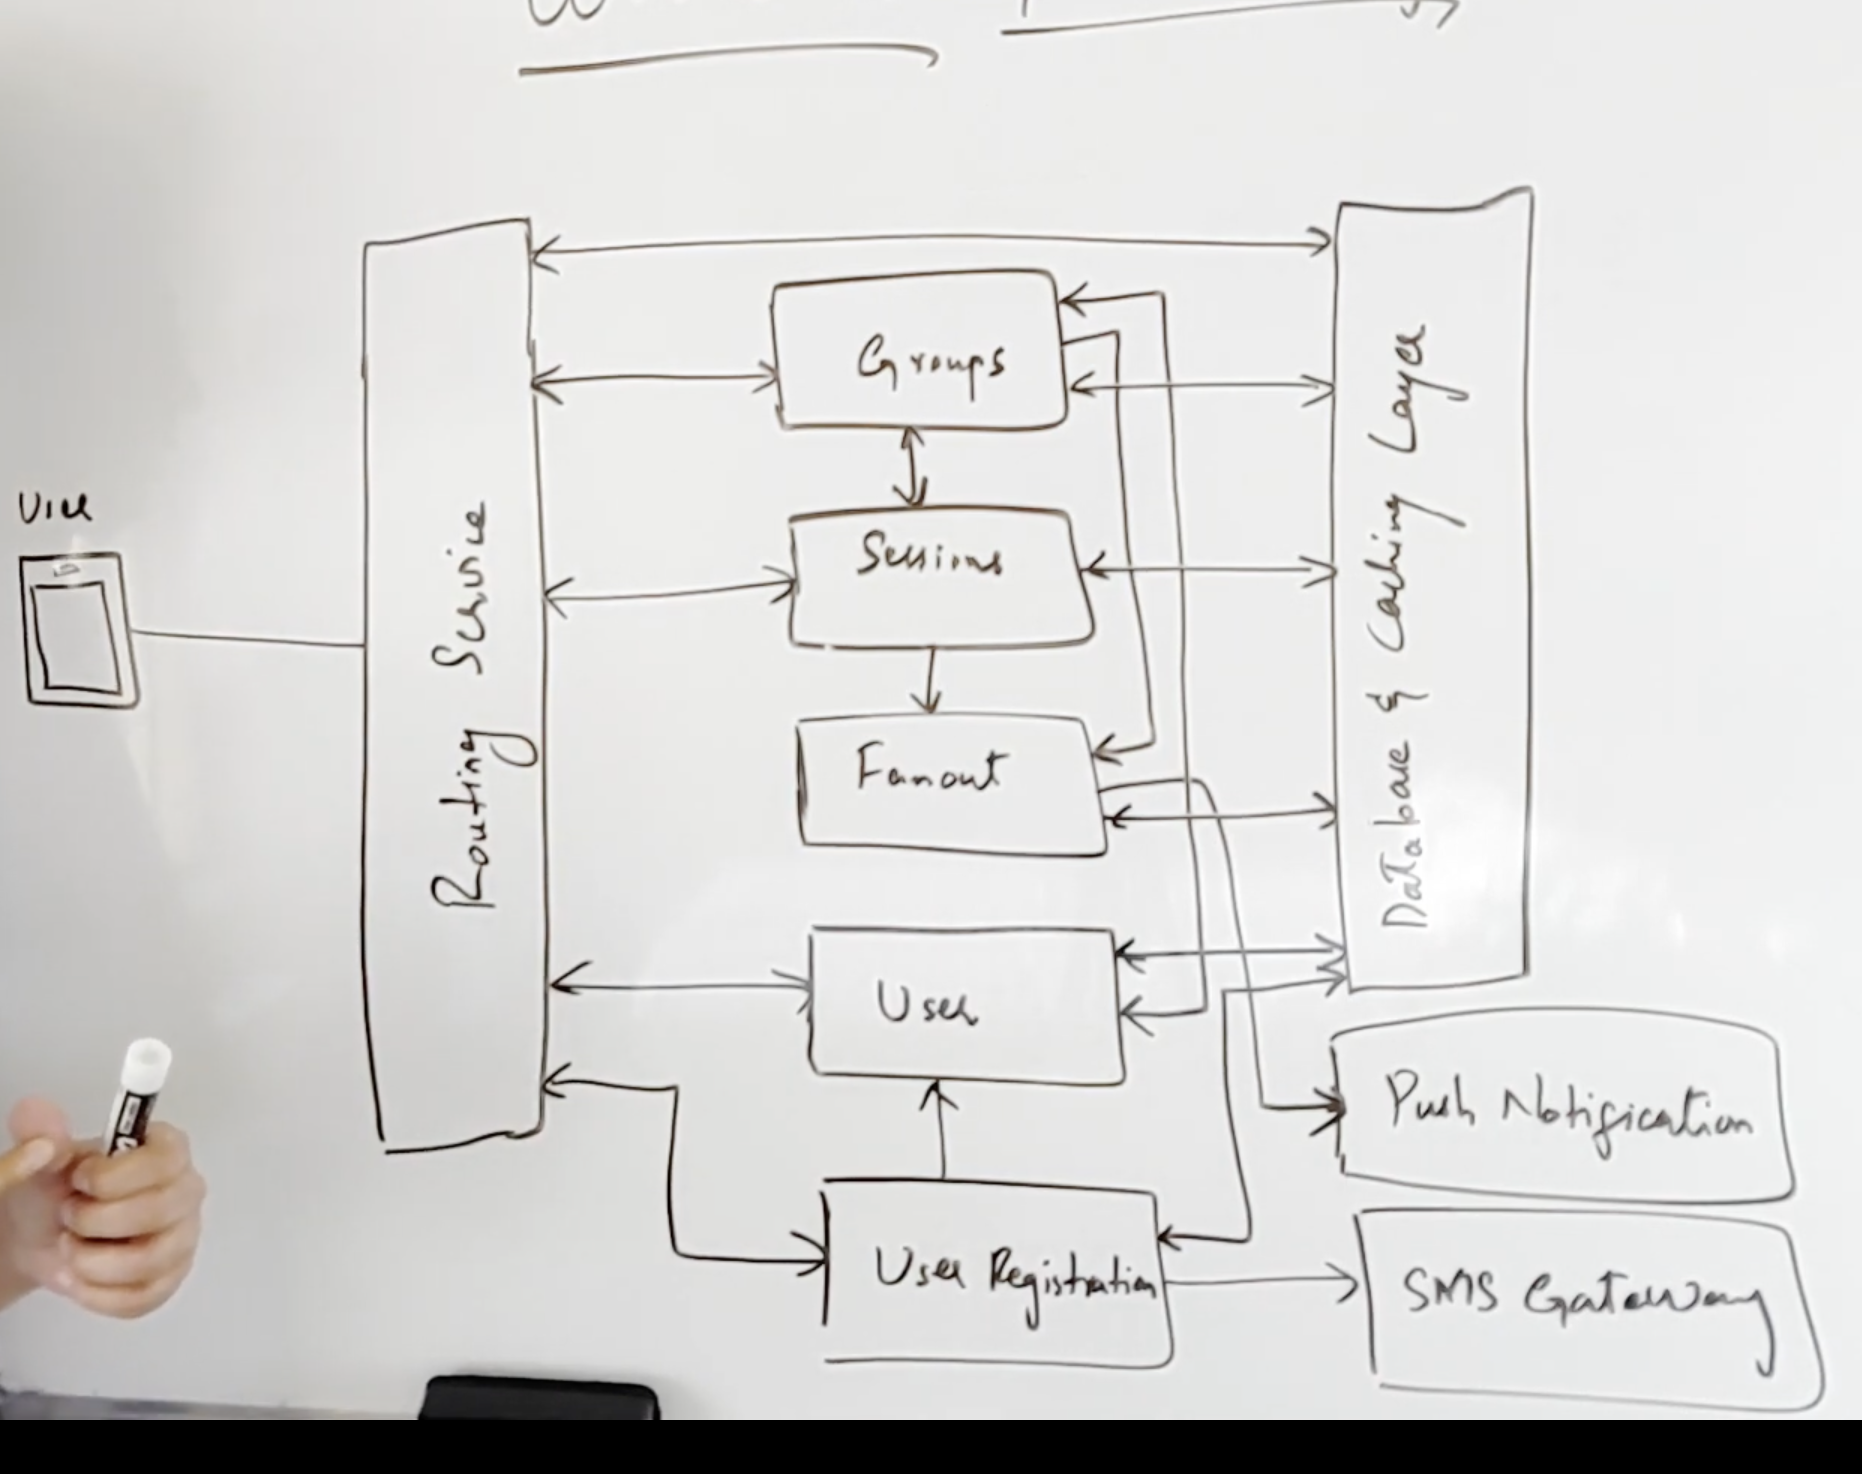 User
Routing Service
Groups
Sessions
Fanout
User
User Registration
Database & Caching Layer
Push Notification
SMS Gateway